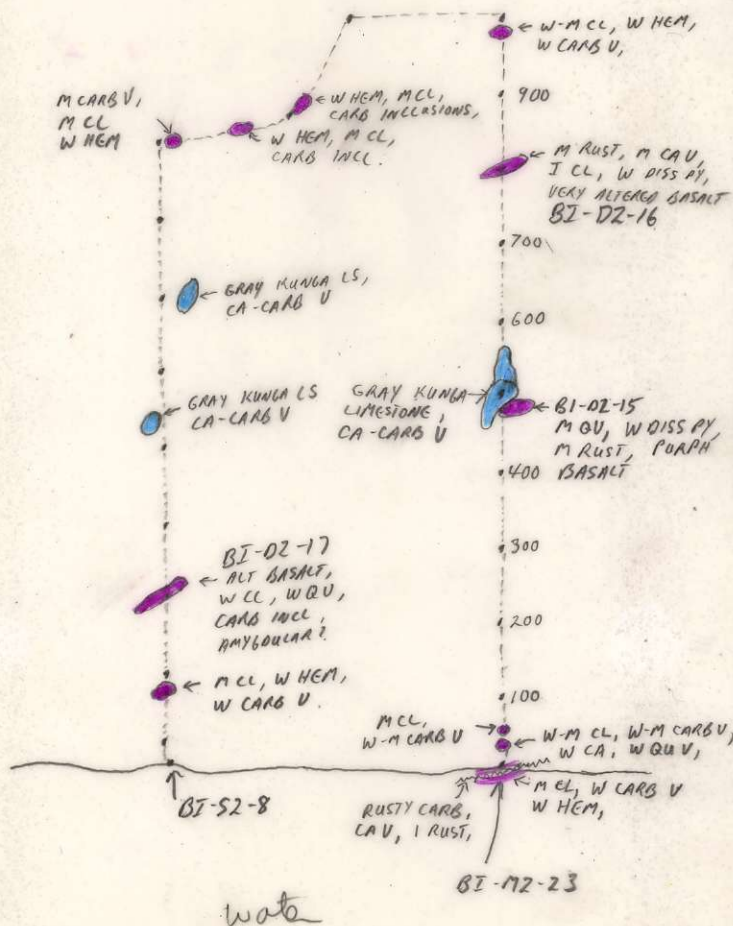 ← W-M CL, W HEM,
W CARB V,
M CARB V,
M CL
W HEM
← W HEM, M CL,
CARB INCLUSIONS,
W HEM, M CL,
CARB INCL.
900
← M RUST, M CA V,
I CL, W DISS PY,
VERY ALTERED BASALT
BI-DZ-16
700
← GRAY KUNGA LS,
CA-CARB V
600
← GRAY KUNGA LS
CA-CARB V
GRAY KUNGA →
LIMESTONE,
CA-CARB V
← BI-DZ-15
M QV, W DISS PY,
M RUST, PORPH
BASALT
400
300
BI-DZ-17
← ALT BASALT,
W CL, W QV,
CARB INCL,
AMYGDULAR?
200
← M CL, W HEM,
W CARB V.
100
M CL, →
W-M CARB V
← W-M CL, W-M CARB V,
W CA, W QU V,
BI-SZ-8
RUSTY CARB,
CA V, I RUST,
M CL, W CARB V
W HEM,
BI-MZ-23
water